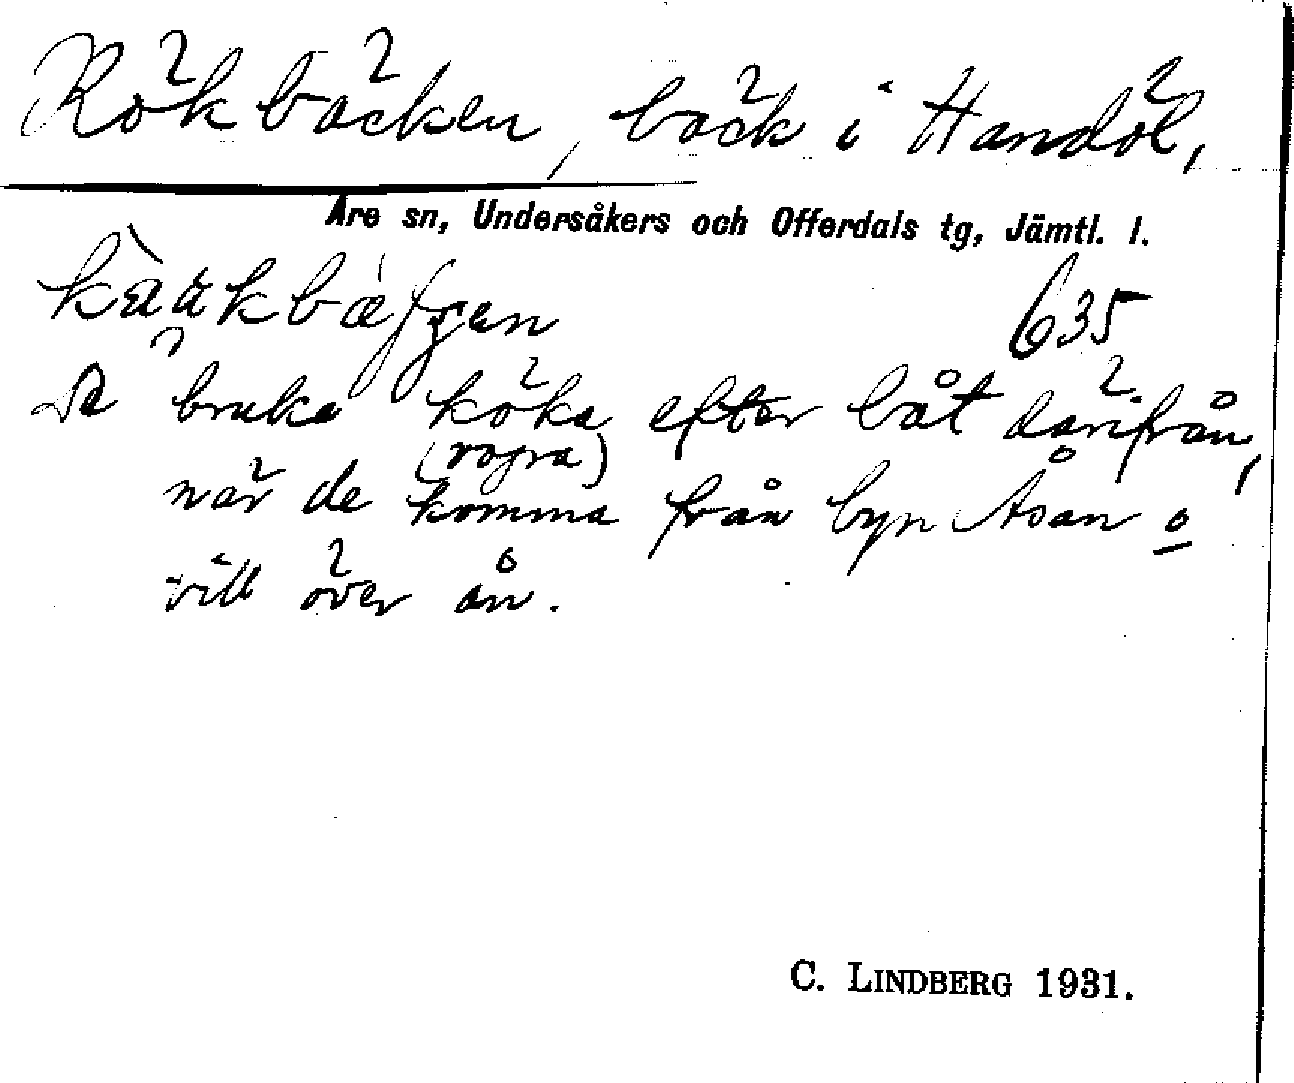 Kökbäcken, bäck i Handöl,
Åre sn, Undersåkers och Offerdals tg, Jämtl. l.
635
De bruka köka efter båt därifrån,
(ropa)
när de komma från byn Åsan o
vill över ån.
C. LINDBERG 1931.